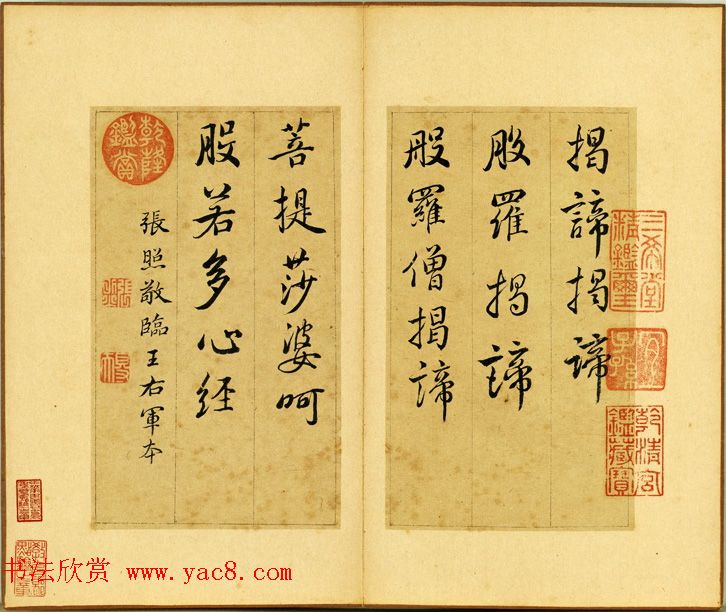 三希堂精鑑璽
宜子孫
乾清宮鑑藏寶
揭諦揭諦
般羅揭諦
般羅僧揭諦
菩提莎婆呵
般若多心經
乾隆鑑賞
張照敬臨王右軍本
书法欣赏 www.yac8.com